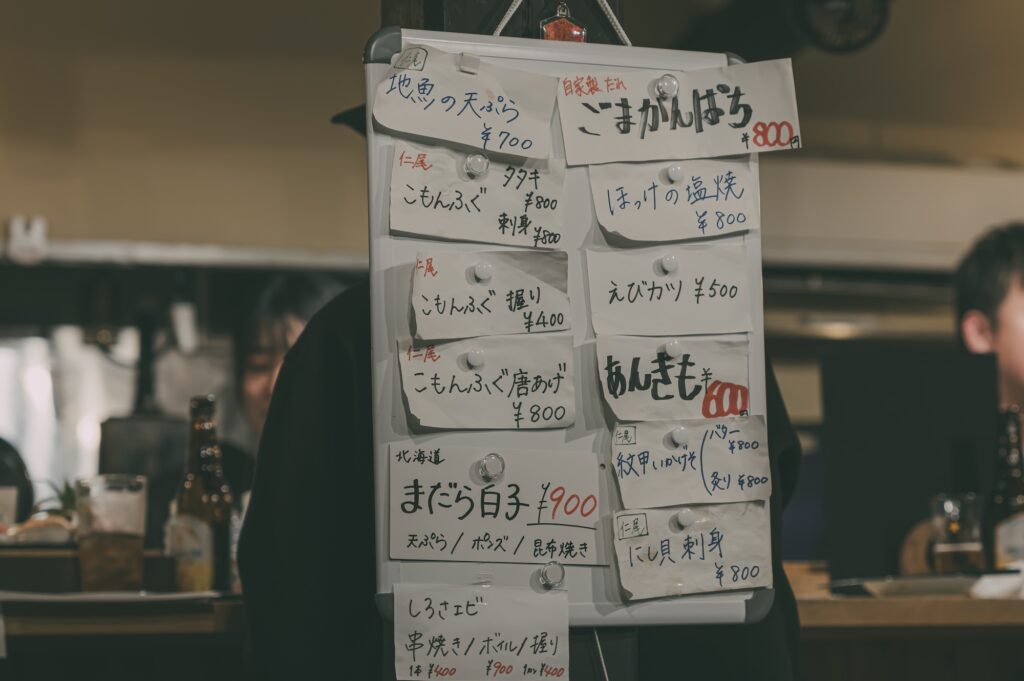 仁尾
地魚の天ぷら
¥700
仁尾
こもんふぐ タタキ
¥800
刺身
¥800
仁尾
こもんふぐ 握り
¥400
仁尾
こもんふぐ唐あげ
¥800
北海道
まだら白子 ¥900
天ぷら/ポンズ/昆布焼き
しろさエビ
串焼き/ボイル/握り
1本 ¥400 ¥900 ¥400
自家製だれ
ごまかんぱち
¥800円
ほっけの塩焼
¥800
えびカツ ¥500
あんきも ¥600円
仁尾
紋甲いかげそ
バター
¥800
炙り ¥800
仁尾
にし貝 刺身
¥800